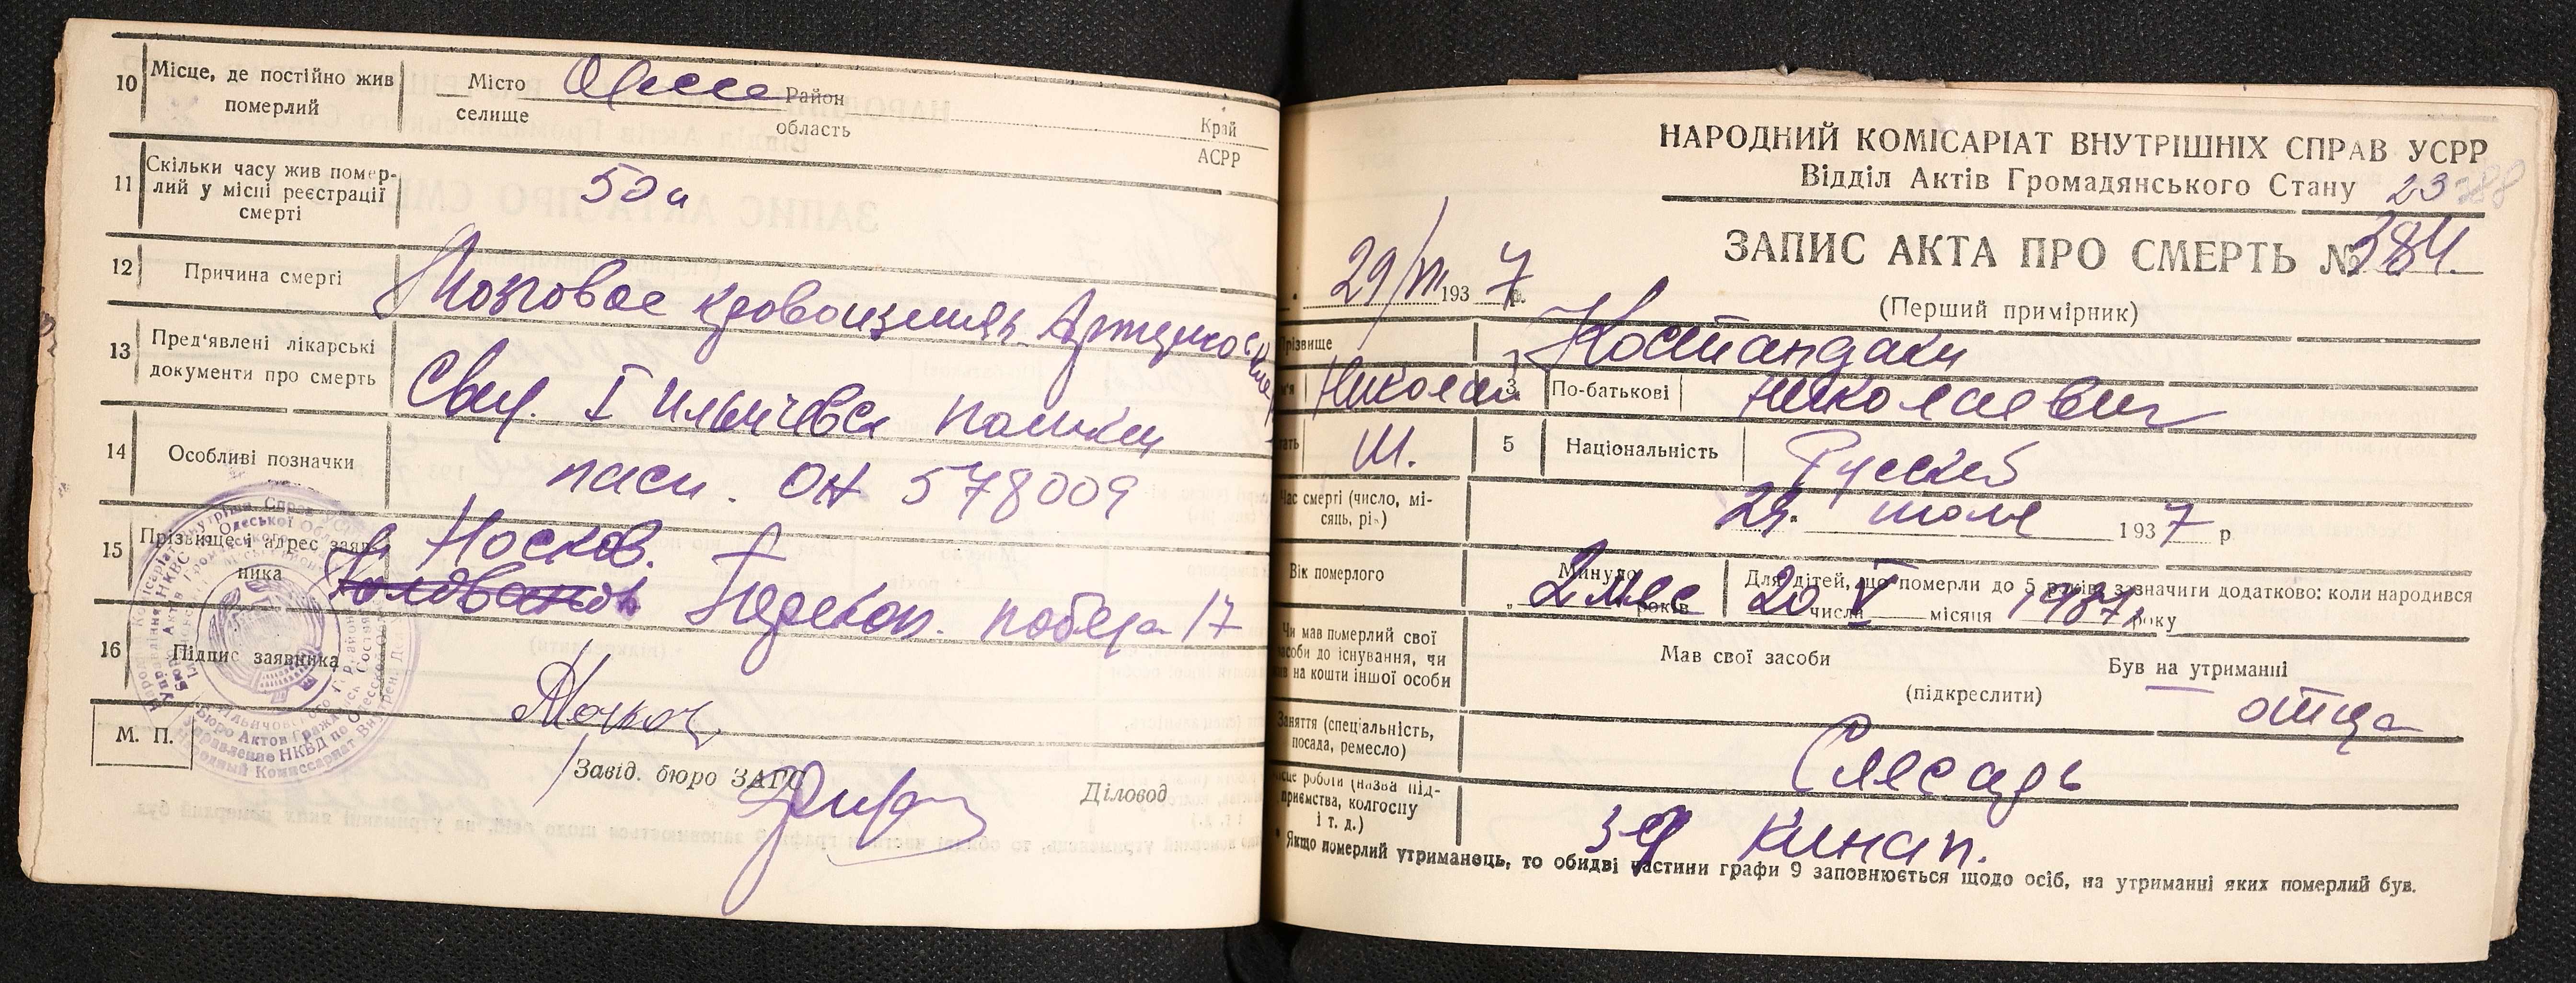 10 Місце, де постійно жив померлий
Місто Одесса Район
селище область Край
АСРР
11 Скільки часу жив помер-
лий у місці реєстрації
смерті
12 Причина смерті
Мозговое
13 Пред'явлені лікарські
документи про смерть
I Ильичевск
14 Особливі позначки
пасп. ОН 578009
15 Прізвище і адрес заяв-
ника
Носков.
победа 17
16 Підпис заявника
М. П.
Завід. бюро ЗАГС Діловод
НАРОДНИЙ КОМІСАРІАТ ВНУТРІШНІХ СПРАВ УСРР
Відділ Актів Громадянського Стану 23 388
ЗАПИС АКТА ПРО СМЕРТЬ № 384.
29/VII 1937 р.
(Перший примірник)
різвище Костандаки
м'я Николай 3 По-батькові Николаевич
ать М. 5 Національність Русский
Час смерті (число, мі-
сяць, рік)
29. июля 1937 р
Вік померлого
Минуло
2 мес років
Для дітей, що померли до 5 років, зазначити додатково: коли народився
20 числа V місяця 1937 року
Чи мав померлий свої
засоби до існування, чи
на кошти іншої особи
Мав свої засоби Був на утриманні
(підкреслити) отца
Заняття (спеціальність,
посада, ремесло)
Слесарь
Місце роботи (назва під-
приємства, колгоспу
і т. д.)
з-д Кинап.
* Якщо померлий утриманець, то обидві частини графи 9 заповнюється щодо осіб, на утриманні яких померлий був.